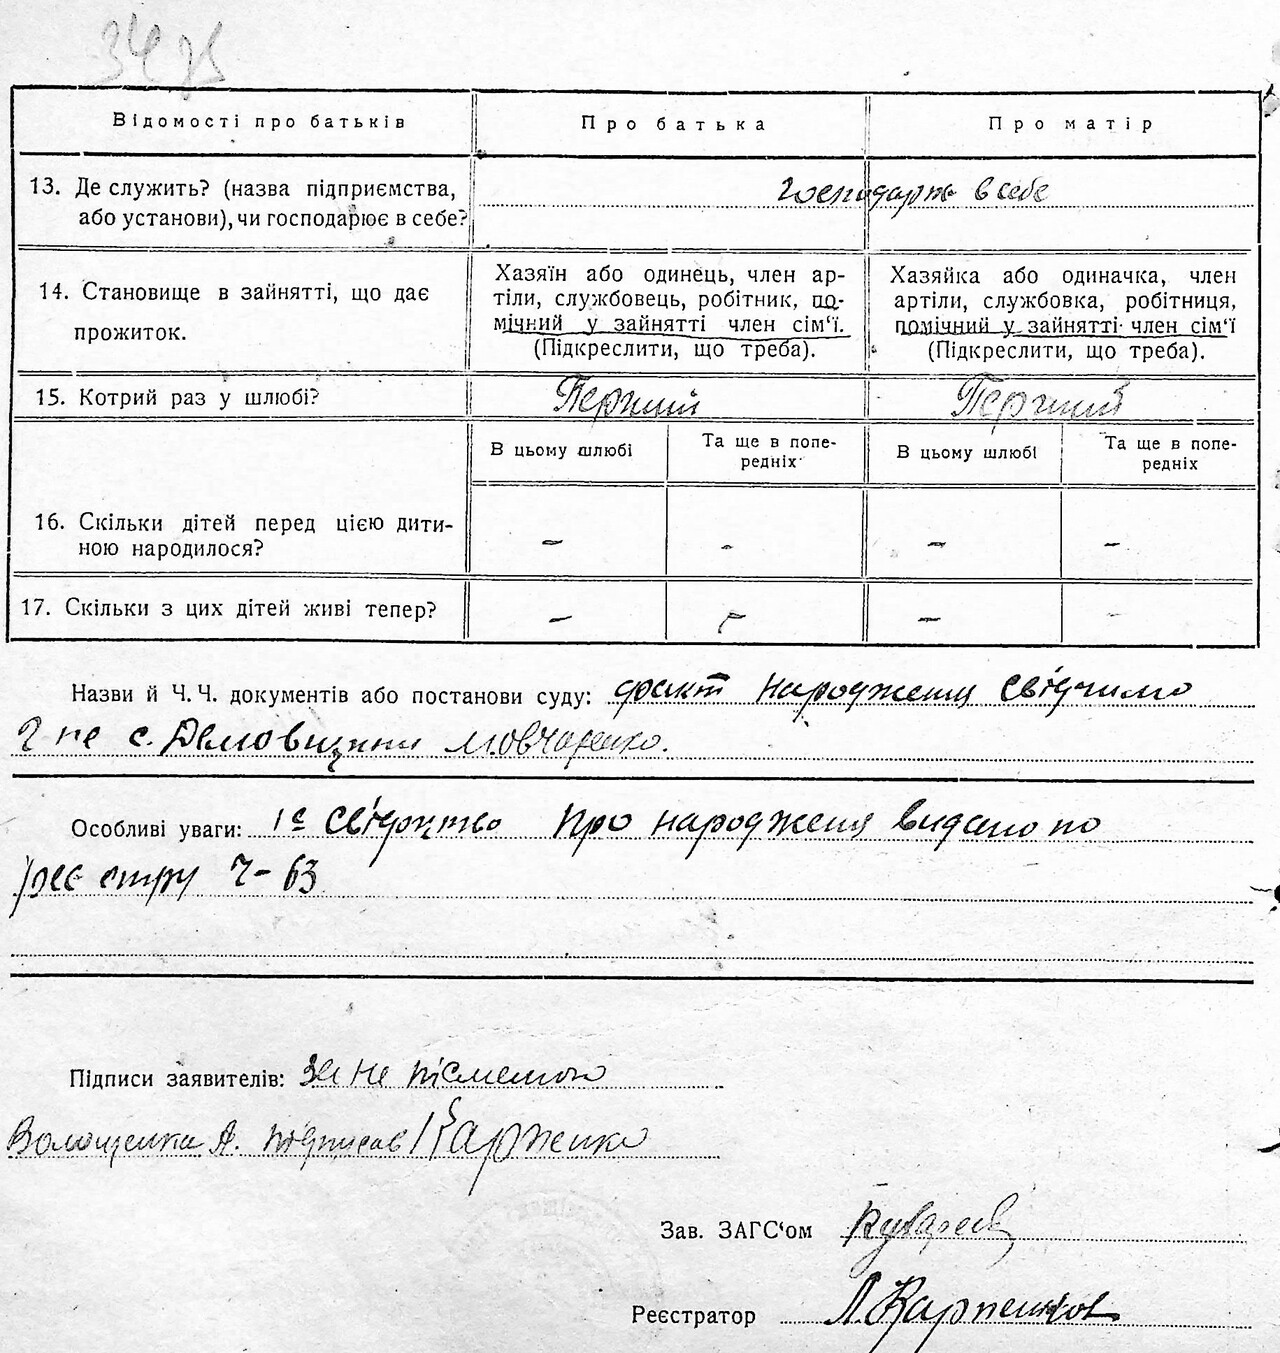 3475
Відомості про батьків
Про батька
Про матір
13. Де служить? (назва підприємства,
або установи), чи господарює в себе?
господарж в себе
14. Становище в зайнятті, що дає
прожиток.
Хазяїн або одинець, член ар-
тіли, службовець, робітник, по-
мічний у зайнятті член сім‘ї.
(Підкреслити, що треба).
Хазяйка або одиначка, член
артіли, службовка, робітниця,
помічний у зайнятті член сім‘ї
(Підкреслити, що треба).
15. Котрий раз у шлюбі?
Перший
Перший
В цьому шлюбі
Та ще в попе-
редніх
В цьому шлюбі
Та ще в попе-
редніх
16. Скільки дітей перед цією дити-
ною народилося?
– – – –
17. Скільки з цих дітей живі тепер?
– – – –
Назви й Ч. Ч. документів або постанови суду: факт народження свідчимо
с. Демовщини Мовчаренко.
Особливі уваги: 1е свідоцтво про народженя видано по
реєстру Ч-63
Підписи заявителів: за не пісменого
Волощенка А. підписав
Зав. ЗАГС‘ом
Реєстратор Л. Карпенков